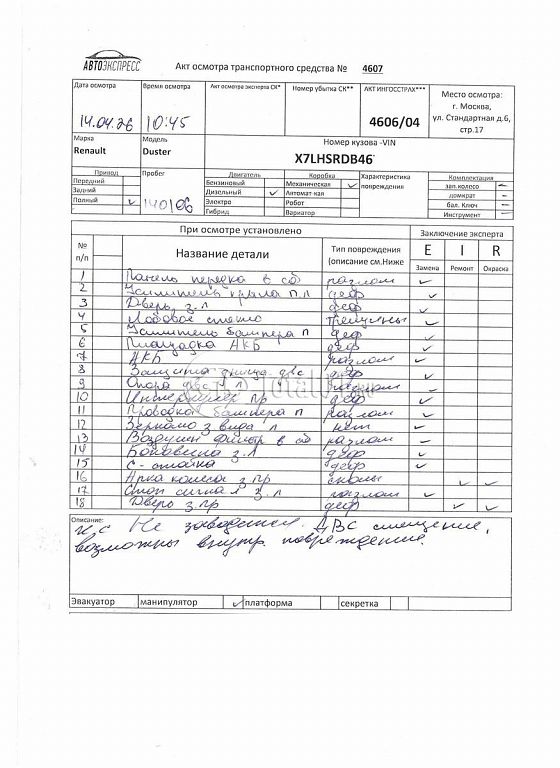 АВТОЭКСПРЕСС
Акт осмотра транспортного средства № 4607
Дата осмотра Время осмотра Акт осмотра эксперта СК* Номер убытка СК** АКТ ИНГОССТРАХ*** Место осмотра:
г. Москва,
ул. Стандартная д.6,
стр.17
14.04.26 10:45 4606/04
Марка Модель Номер кузова -VIN
Renault Duster X7LHSRDB46
Привод Пробег Двигатель Коробка Характеристика повреждения Комплектация
Передний Бензиновый Механическая ✓ зап.колесо –
Задний Дизельный ✓ Автомат кая домкрат –
Полный ✓ 140106 Электро Робот бал. Ключ –
Гибрид Вариатор Инструмент –
При осмотре установлено Заключение эксперта
№ п/п Название детали Тип повреждения (описание см.Ниже E I R
Замена Ремонт Окраска
1 Панель передка в сб разлом ✓
2 Усилитель крыла п.л деф ✓
3 Дверь з.л деф ✓
4 Лобовое стекло трещины ✓
5 Усилитель бампера п деф ✓
6 Площадка АКБ деф ✓
7 АКБ разлом ✓
8 Защита днища двс деф ✓
9 Опора двс л разлом ✓
10 Интеркулер пр деф ✓
11 Проводка бампера п разлом ✓
12 Зеркало з вида л нет ✓
13 Воздушн фильтр в сб разлом ✓
14 Боковина з.л деф ✓
15 С-стойка деф ✓
16 Арка колеса з пр сколы ✓ ✓
17 Стоп сигнал з.л разлом ✓
18 Дверь з.пр деф ✓ ✓
Описание:
Не заводится. ДВС смещение,
возможны внутр. повреждения.
Эвакуатор манипулятор ✓ платформа секретка